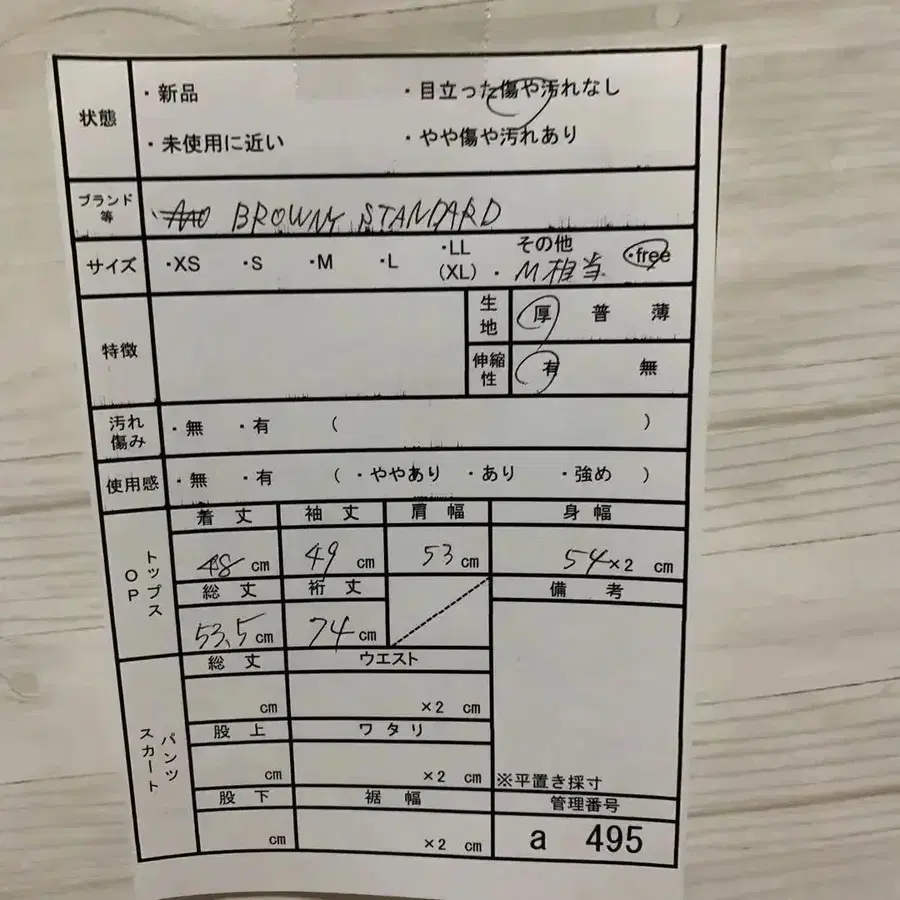 状態
・新品 ・目立った傷や汚れなし
・未使用に近い ・やや傷や汚れあり
ブランド等 ・ BROWNY STANDARD
サイズ ・XS ・S ・M ・L ・LL (XL) ・その他 M相当 ・free
特徴
生地 厚 普 薄
伸縮性 有 無
汚れ傷み ・無 ・有 ( )
使用感 ・無 ・有 ( ・ややあり ・あり ・強め )
トップス OP
着丈 袖丈 肩幅 身幅
48 cm 49 cm 53 cm 54×2 cm
総丈 裄丈 備考
53.5 cm 74 cm
パンツ スカート
総丈 ウエスト
cm ×2 cm
股上 ワタリ
cm ×2 cm
※平置き採寸
股下 裾幅 管理番号
cm ×2 cm a 495